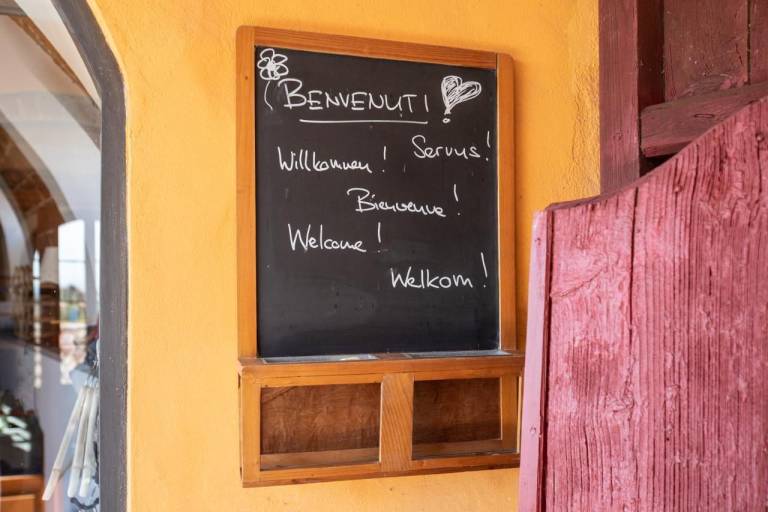 BENVENUTI
Servus!
Willkommen!
Bienvenue!
Welcome!
Welkom!